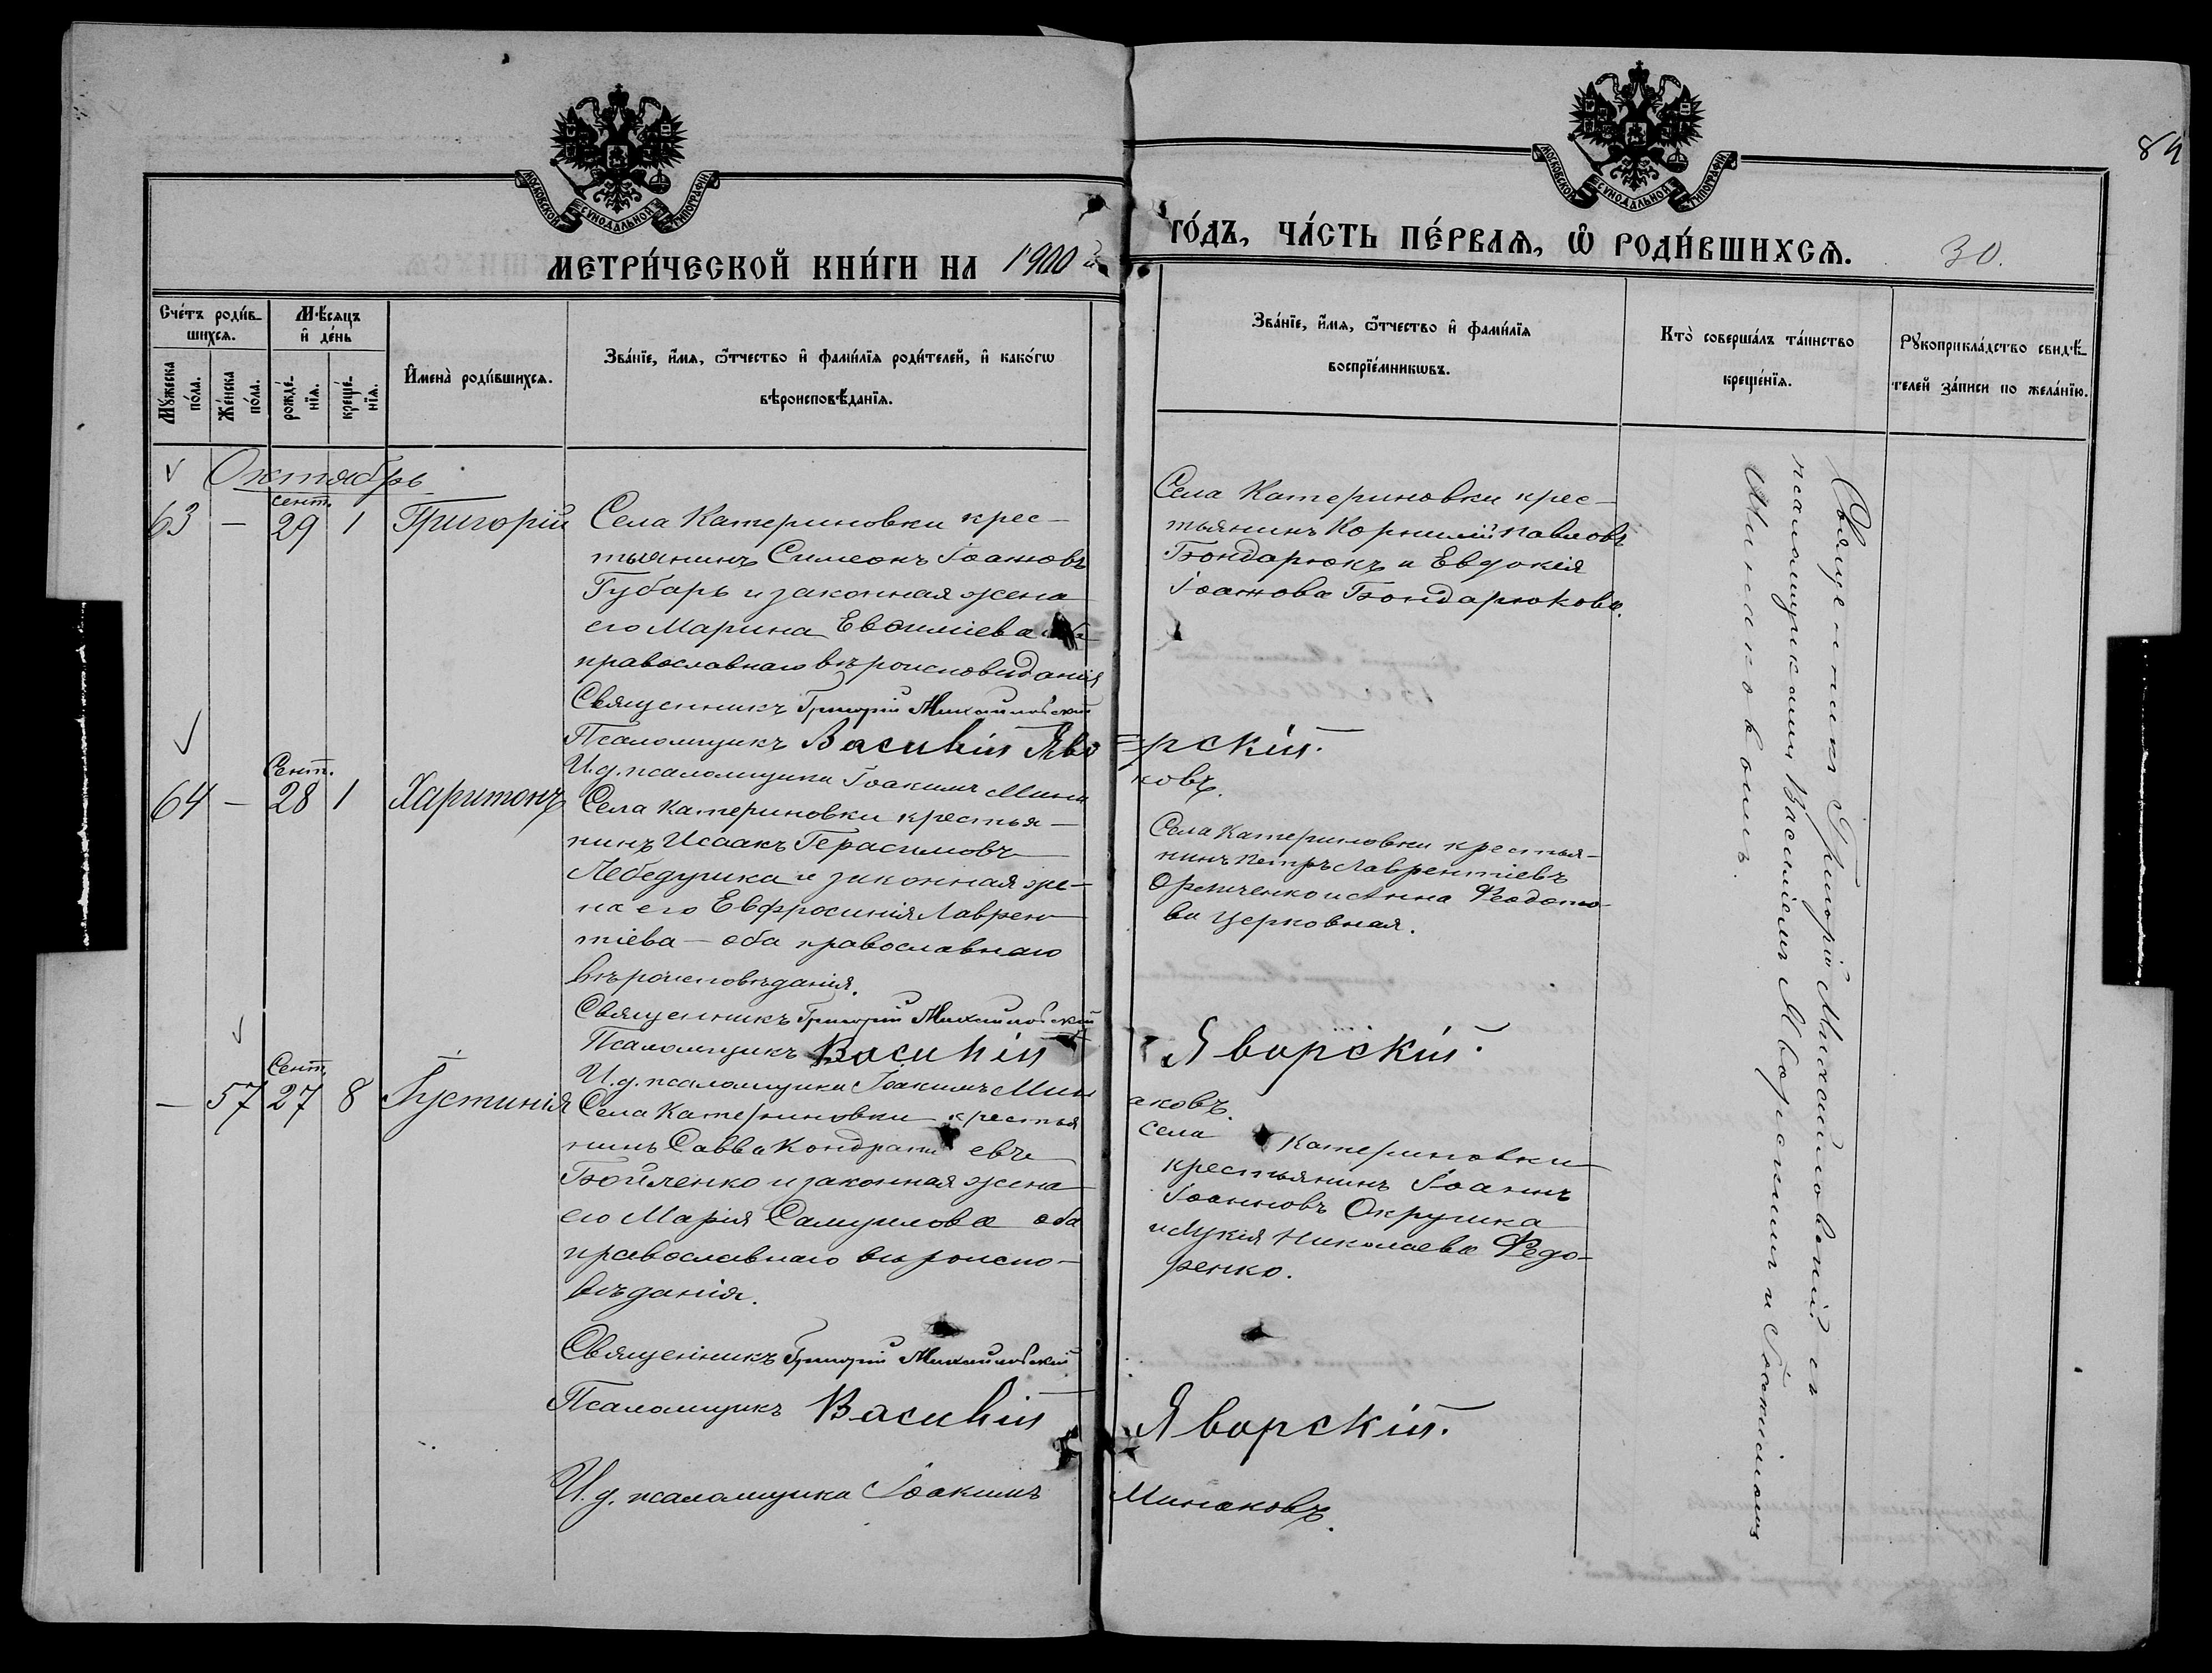 84
МОСКОВСКОЙ СѴНОДАЛЬНОЙ ТИПОГРАФІИ
МОСКОВСКОЙ СѴНОДАЛЬНОЙ ТИПОГРАФІИ
МЕТРИ́ЧЕСКОЙ КНИ́ГИ НА 1900й
ГО́ДЪ, ЧА́СТЬ ПЕ́РВАѦ, Ѽ РОДИ́ВШИХСѦ.
30.
Сче́тъ роди́в-
шихсѧ.
Мꙋ́жеска
по́ла.
Же́нска
по́ла.
Мѣ́сѧцъ
и҆ де́нь
рожде́-
нїѧ.
креще́-
нїѧ.
И҆мена̀ роди́вшихсѧ.
Зва́нїе, и҆́мѧ, ѻ҆́тчество и҆ фами́лїѧ роди́телей, и҆ како́гѡ
вѣроисповѣ́данїѧ.
Зва́нїе, и҆́мѧ, ѻ҆́тчество и҆ фами́лїѧ
воспрїе́мникѡвъ.
Кто̀ соверша́лъ та́инство
креще́нїѧ.
Рꙋкоприкла́дство свидѣ́-
телей за́писи по жела́нїю.
Октябрь
63 — сент. 29 1 Григорій
Села Катериновки крес-
тьянинъ Симеонъ Іоанновъ
Губарь и законная жена
его Марина Евѳиміева оба
православнаго вѣроисповѣданія
Священникъ Григорій Михайловскій
Псаломщикъ Василій Яво=рскій.
И.д. псаломщика Іоакимъ Минаковъ.
Села Катериновки крес-
тьянинъ Корнилій Павловъ
Бондарюкъ и Евдокія
Іоаннова Бондарюкова.
64 — Сент. 28 1 Харитонъ
Села Катериновки крестья-
нинъ Исаакъ Герасимовъ
Лебедушка и законная же-
на его Евфросинія Лаврен-
тіева — оба православнаго
вѣроисповѣданія.
Священникъ Григорій Михайловскій
Псаломщикъ Василій Яворскій.
И.д. псаломщика Іоакимъ Минаковъ.
Села Катериновки крестья-
нинъ Петръ Лаврентіевъ
и Анна Ѳеодото-
ва Церковная.
— 57 Сент. 27 8 Іустинія
Села Катериновки крестья
нинъ Савва Кондратіевъ
Бойленко и законная жена
его Марія Самуилова оба
православнаго вѣроиспо-
вѣданія.
Священникъ Григорій Михайловскій
Псаломщикъ Василій Яворскій.
И.д. псаломщика Іоакимъ Минаковъ.
Села Катериновки
крестьянинъ Іоаннъ
Іоанновъ Окрушка
и Лукія Николаева Ѳедо-
ренко.
Священникъ Григорій Михайловскій съ
псаломщиками Василіемъ Яворскимъ и Іоакимомъ
Минаковымъ.